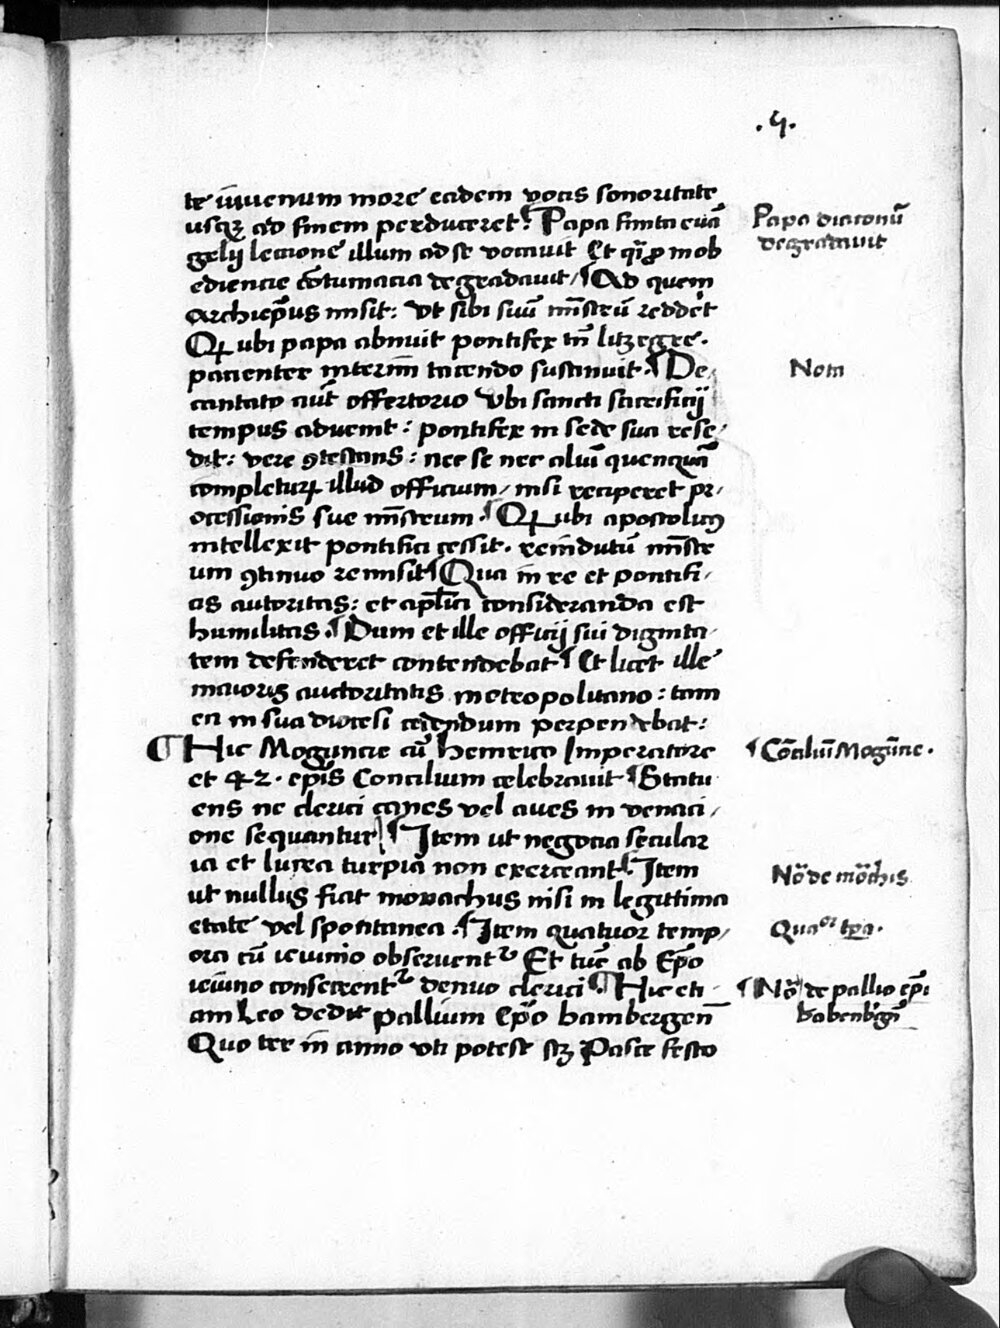 .5.
te iuvenum more eadem vocis sonoritate
usqꝫ ad finem perduceret. ¶ Papa finita euā
gelij lectione illum ad se vocauit Et qꝛ ꝓ inob
ediencie cōtumacia degradauit / ¶ Ad quem
Archiep̄us misit: vt sibi suū mīstrū redd'et
Qꝺ ubi papa abnuit pontifex tn̄ egre.
pacienter interim tacendo sustinuit. ¶ De
cantato aūt offertorio vbi sancti sacrificij
tempus aduenit: pontifex in sede sua rese,
dit: vere ꝯtestans: nec se nec aliū quenquā
completurꝫ illud officium, nisi reciperet pr,
ocessionis sue mīstrum. ¶ Qꝺ ubi apostolicꝰ
intellexit pontifici cessit. reindutū mīstr
um ꝯtinuo remisit ¶ Qua in re et pontifi,
cis autoritas: et apl̄ica consideranda est
humilitas. ¶ Dum et ille officij sui dignita,
tem defenderet contendebat ¶ Et licet ille
maioris auctoritatis metropolitano: tam
en in sua diocesi cedendum perpendebat:
¶ Hic Moguncie cū Heinrico Imperatore
et 42. ep̄is Concilium celebrauit ¶ Statu
ens ne clerici canes vel aues in venaci,
one sequantur ¶ Item ut negocia secular
ia et lucra turpia non exerceant ¶ Item
ut nullus fiat monachus nisi in legittima
etate vel spontanea. ¶ Item quatuor temp,
ora cū ieiunio obseruentᷣ Et tūc ab Ep̄o
ieiuno consecrentᷣ denuo clerici ¶ Hic eti
am Leo dedit pallium Ep̄o bambergen̄
Quo ter in anno vti potest sꝫ Pasce festo
Papa diaconū
degradauit
Nota
¶ Cōciliū Mogūcie.
Nō de mōchis
Quaᵒʳ tp̄a.
¶ Nō de pallio ep̄i
babenb'gn̄